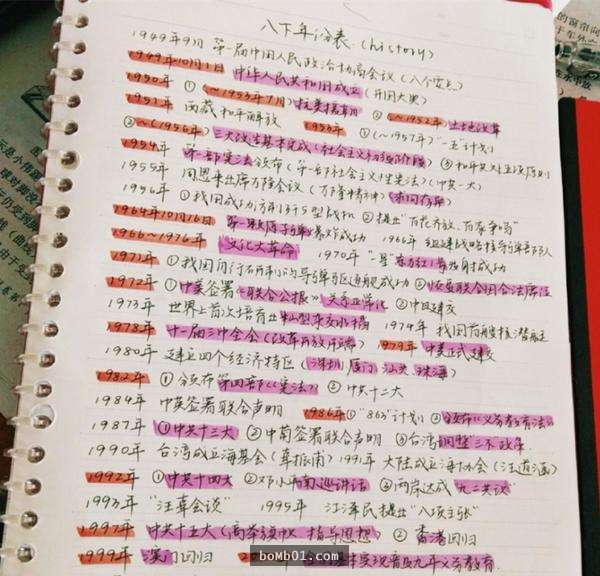 八下年代表 (history)
1949年9月 第一届中国人民政治协商会议
1949年10月1日 中华人民共和国成立 (开国大典)
1950年 ① (~1953年7月) 抗美援朝 ② (~1952年) 土地改革
1951年 西藏和平解放 1953年 ① (~1957年) 一五计划
② ~(1956年) 三大改造基本完成 ③和平共处五项原则
1954年 第一部宪法颁布
1955年 周恩来出席万隆会议 (万隆精神) 求同存异
1956年 ①我国成功 ②提出"百花齐放、百家争鸣"
1964年10月16日 第一颗原子弹爆炸成功 1966年
1966~1976年 文化大革命 1970年 "东方红1号"发射成功
1971年 ①我国 导弹驱逐舰成功 ②恢复联合国合法席位
1972年 ①中美签署《联合公报》关系正常化 ②中日建交
1973年 世界上首次培育出籼型杂交水稻 1974年 我国 核潜艇
1978年 十一届三中全会 (改革开放 1979年 中美正式建交
1980年 建立四个经济特区 (深圳 厦门 汕头 珠海)
1982年 ①颁布第四部《宪法》 ②中共十二大
1984年 中英签署联合声明 1986年 ①"863"计划 ②颁布《义务教育法》
1987年 ①中共十三大 ②中葡签署联合声明 ③台湾调整"三不政策
1990年 台湾成立海基会 (辜振甫) 1991年 大陆成立海协会 (汪道涵)
1992年 ①中共十四大 ②邓小平南巡讲话 ③两岸达成"九二共识"
1993年 "汪辜会谈" 1995年 江泽民提出"八项主张"
1997年 中共十五大 (高举旗帜 指导思想) ②香港回归
1999年 澳门回归 基本实现普及九年义务教育
bomb01.com